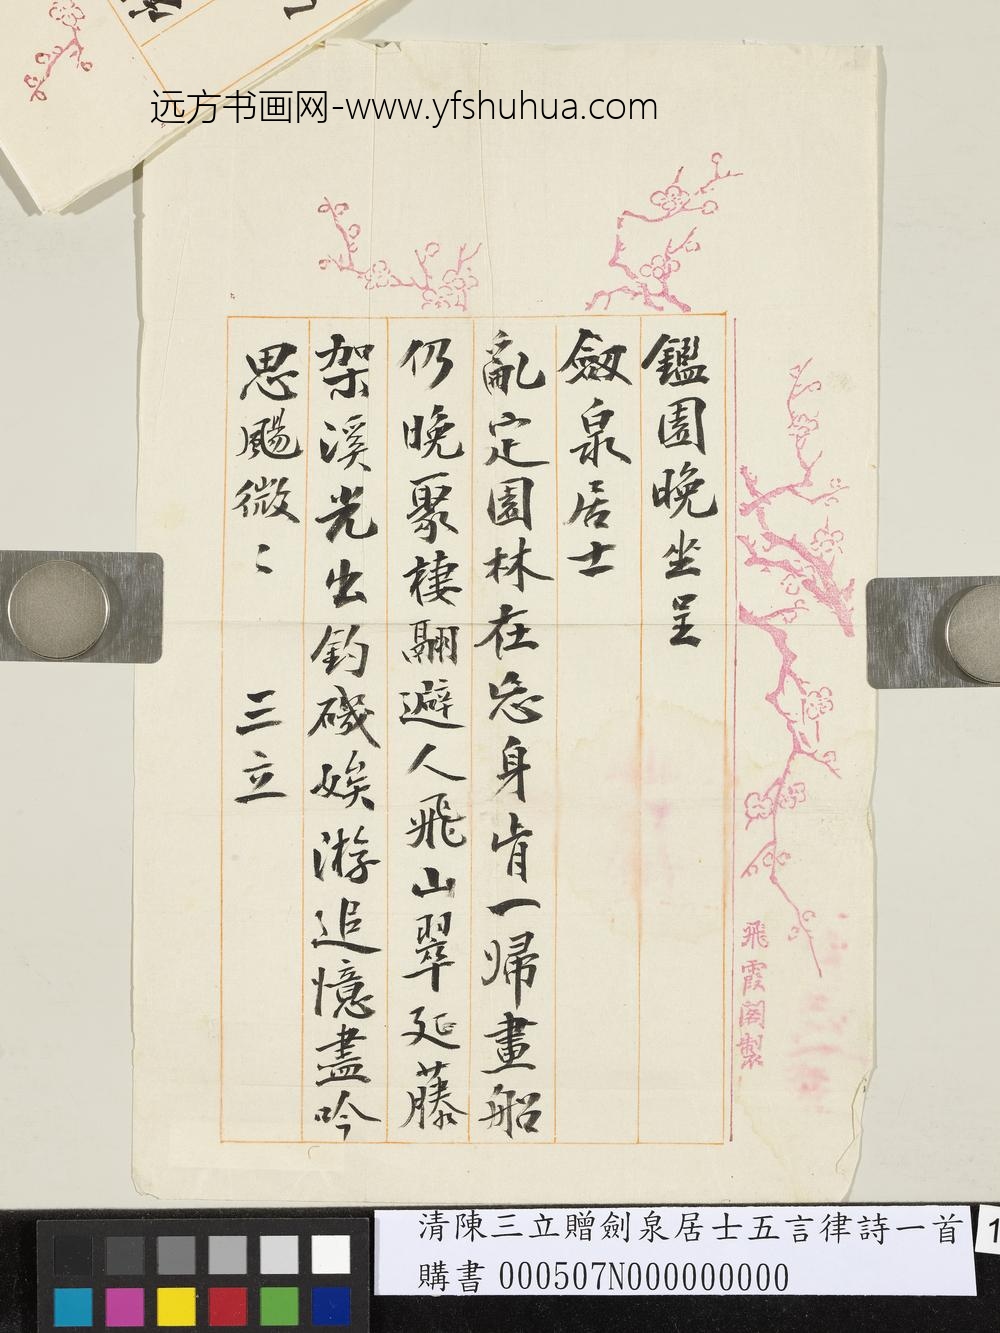 远方书画网-www.yfshuhua.com
鑑園晚坐呈
劔泉居士
亂定園林在忍身肯一歸畫船
仍晚聚棲翮避人飛山翠延藤
架溪光出釣磯娭游追憶盡吟
思颺微〻　三立
飛霞閣製
清陳三立贈劍泉居士五言律詩一首
購書 000507N000000000
1